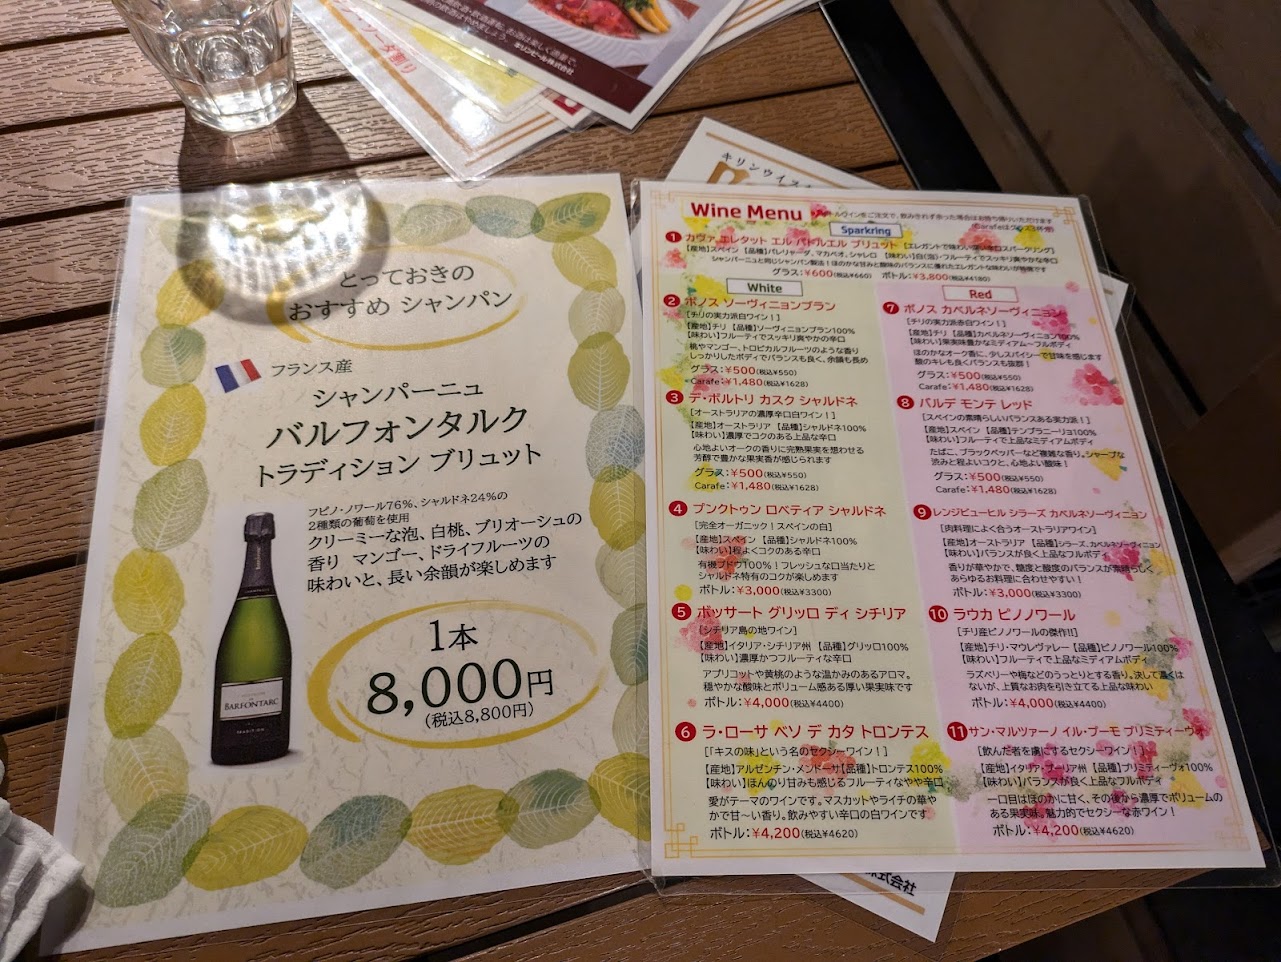 とっておきの
おすすめ シャンパン
フランス産
シャンパーニュ
バルフォンタルク
トラディション ブリュット
フピノ・ノワール76%、シャルドネ24%の
2種類の葡萄を使用
クリーミーな泡、白桃、ブリオーシュの
香り マンゴー、ドライフルーツの
味わいと、長い余韻が楽しめます
BARFONTARC
TRADITION
1本
8,000円
(税込8,800円)
ソーダ割り
キリンビール株式会社
Wine Menu
ボトルワインをご注文で、飲みきれず余った場合はお持ち帰りいただけます
(Carafeはグラス3杯分)
Sparkring
1 カヴァ エレタット エル パドルエル ブリュット [エレガントで味わい深い辛口スパークリング]
【産地】スペイン 【品種】パレリャーダ、マカベオ、シャレロ 【味わい】白(泡)・フルーティでスッキリ爽やかな辛口
シャンパーニュと同じシャンパン製法!ほのかな甘みと酸味のバランスに優れたエレガントな味わいが特徴です
グラス:¥600(税込¥660) ボトル:¥3,800(税込¥4180)
White
2 ボノス ソーヴィニヨンブラン
[チリの実力派白ワイン!]
【産地】チリ 【品種】ソーヴィニヨンブラン100%
【味わい】フルーティでスッキリ爽やかの辛口
桃やマンゴー、トロピカルフルーツのような香り
しっかりしたボディでバランスも良く、余韻も長め
グラス:¥500(税込¥550)
Carafe:¥1,480(税込¥1628)
3 デ・ボルトリ カスク シャルドネ
[オーストラリアの濃厚辛口白ワイン!]
【産地】オーストラリア 【品種】シャルドネ100%
【味わい】濃厚でコクのある上品な辛口
心地よいオークの香りに完熟果実を想わせる
芳醇で豊かな果実香が感じられます
グラス:¥500(税込¥550)
Carafe:¥1,480(税込¥1628)
4 プンクトゥン ロペティア シャルドネ
[完全オーガニック!スペインの白]
【産地】スペイン 【品種】シャルドネ100%
【味わい】程よくコクのある辛口
有機ブドウ100%!フレッシュな口当たりと
シャルドネ特有のコクが楽しめます
ボトル:¥3,000(税込¥3300)
5 ボッサート グリッロ ディ シチリア
[シチリア島の地ワイン]
【産地】イタリア・シチリア州 【品種】グリッロ100%
【味わい】濃厚かつフルーティな辛口
アプリコットや黄桃のような温かみのあるアロマ。
穏やかな酸味とボリューム感ある厚い果実味です
ボトル:¥4,000(税込¥4400)
6 ラ・ローサ ベソ デ カタ トロンテス
[「キスの味」という名のセクシーワイン!]
【産地】アルゼンチン・メンドーサ【品種】トロンテス100%
【味わい】ほんのり甘みも感じるフルーティなやや辛口
愛がテーマのワインです。マスカットやライチの華や
かで甘〜い香り。飲みやすい辛口の白ワインです
ボトル:¥4,200(税込¥4620)
Red
7 ボノス カベルネソーヴィニヨン
[チリの実力派赤白ワイン!]
【産地】チリ 【品種】カベルネソーヴィニヨン100%
【味わい】果実味豊かなミディアム〜フルボディ
ほのかなオーク香に、少しスパイシーで甘味を感じます
酸のキレも良くバランスも抜群!
グラス:¥500(税込¥550)
Carafe:¥1,480(税込¥1628)
8 バルデ モンテ レッド
[スペインの素晴らしいバランスある実力派!]
【産地】スペイン 【品種】テンプラニーリョ100%
【味わい】フルーティで上品なミディアムボディ
たばこ、ブラックペッパーなど複雑な香り。シャープな
渋みと程よいコクと、心地よい酸味!
グラス:¥500(税込¥550)
Carafe:¥1,480(税込¥1628)
9 レンジビューヒル シラーズ カベルネソーヴィニヨン
[肉料理によく合うオーストラリアワイン]
【産地】オーストラリア 【品種】シラーズ、カベルネソーヴィニヨン
【味わい】バランスが良く上品なフルボディ
香りが華やかで、糖度と酸度のバランスが素晴らしく
あらゆるお料理に合わせやすい!
ボトル:¥3,000(税込¥3300)
10 ラウカ ピノノワール
[チリ産ピノノワールの傑作!!]
【産地】チリ・マウレヴァレー 【品種】ピノノワール100%
【味わい】フルーティで上品なミディアムボディ
ラズベリーや梅などのうっとりとする香り。決して濃くは
ないが、上質なお肉を引き立てる上品な味わい
ボトル:¥4,000(税込¥4400)
11 サン・マルツァーノ イル・プーモ プリミティーヴォ
[飲んだ者を虜にするセクシーワイン!]
【産地】イタリア・プーリア州 【品種】プリミティーヴォ100%
【味わい】バランスが良く上品なフルボディ
一口目はほのかに甘く、その後から濃厚でボリュームの
ある果実味。魅力的でセクシーな赤ワイン!
ボトル:¥4,200(税込¥4620)
株式会社